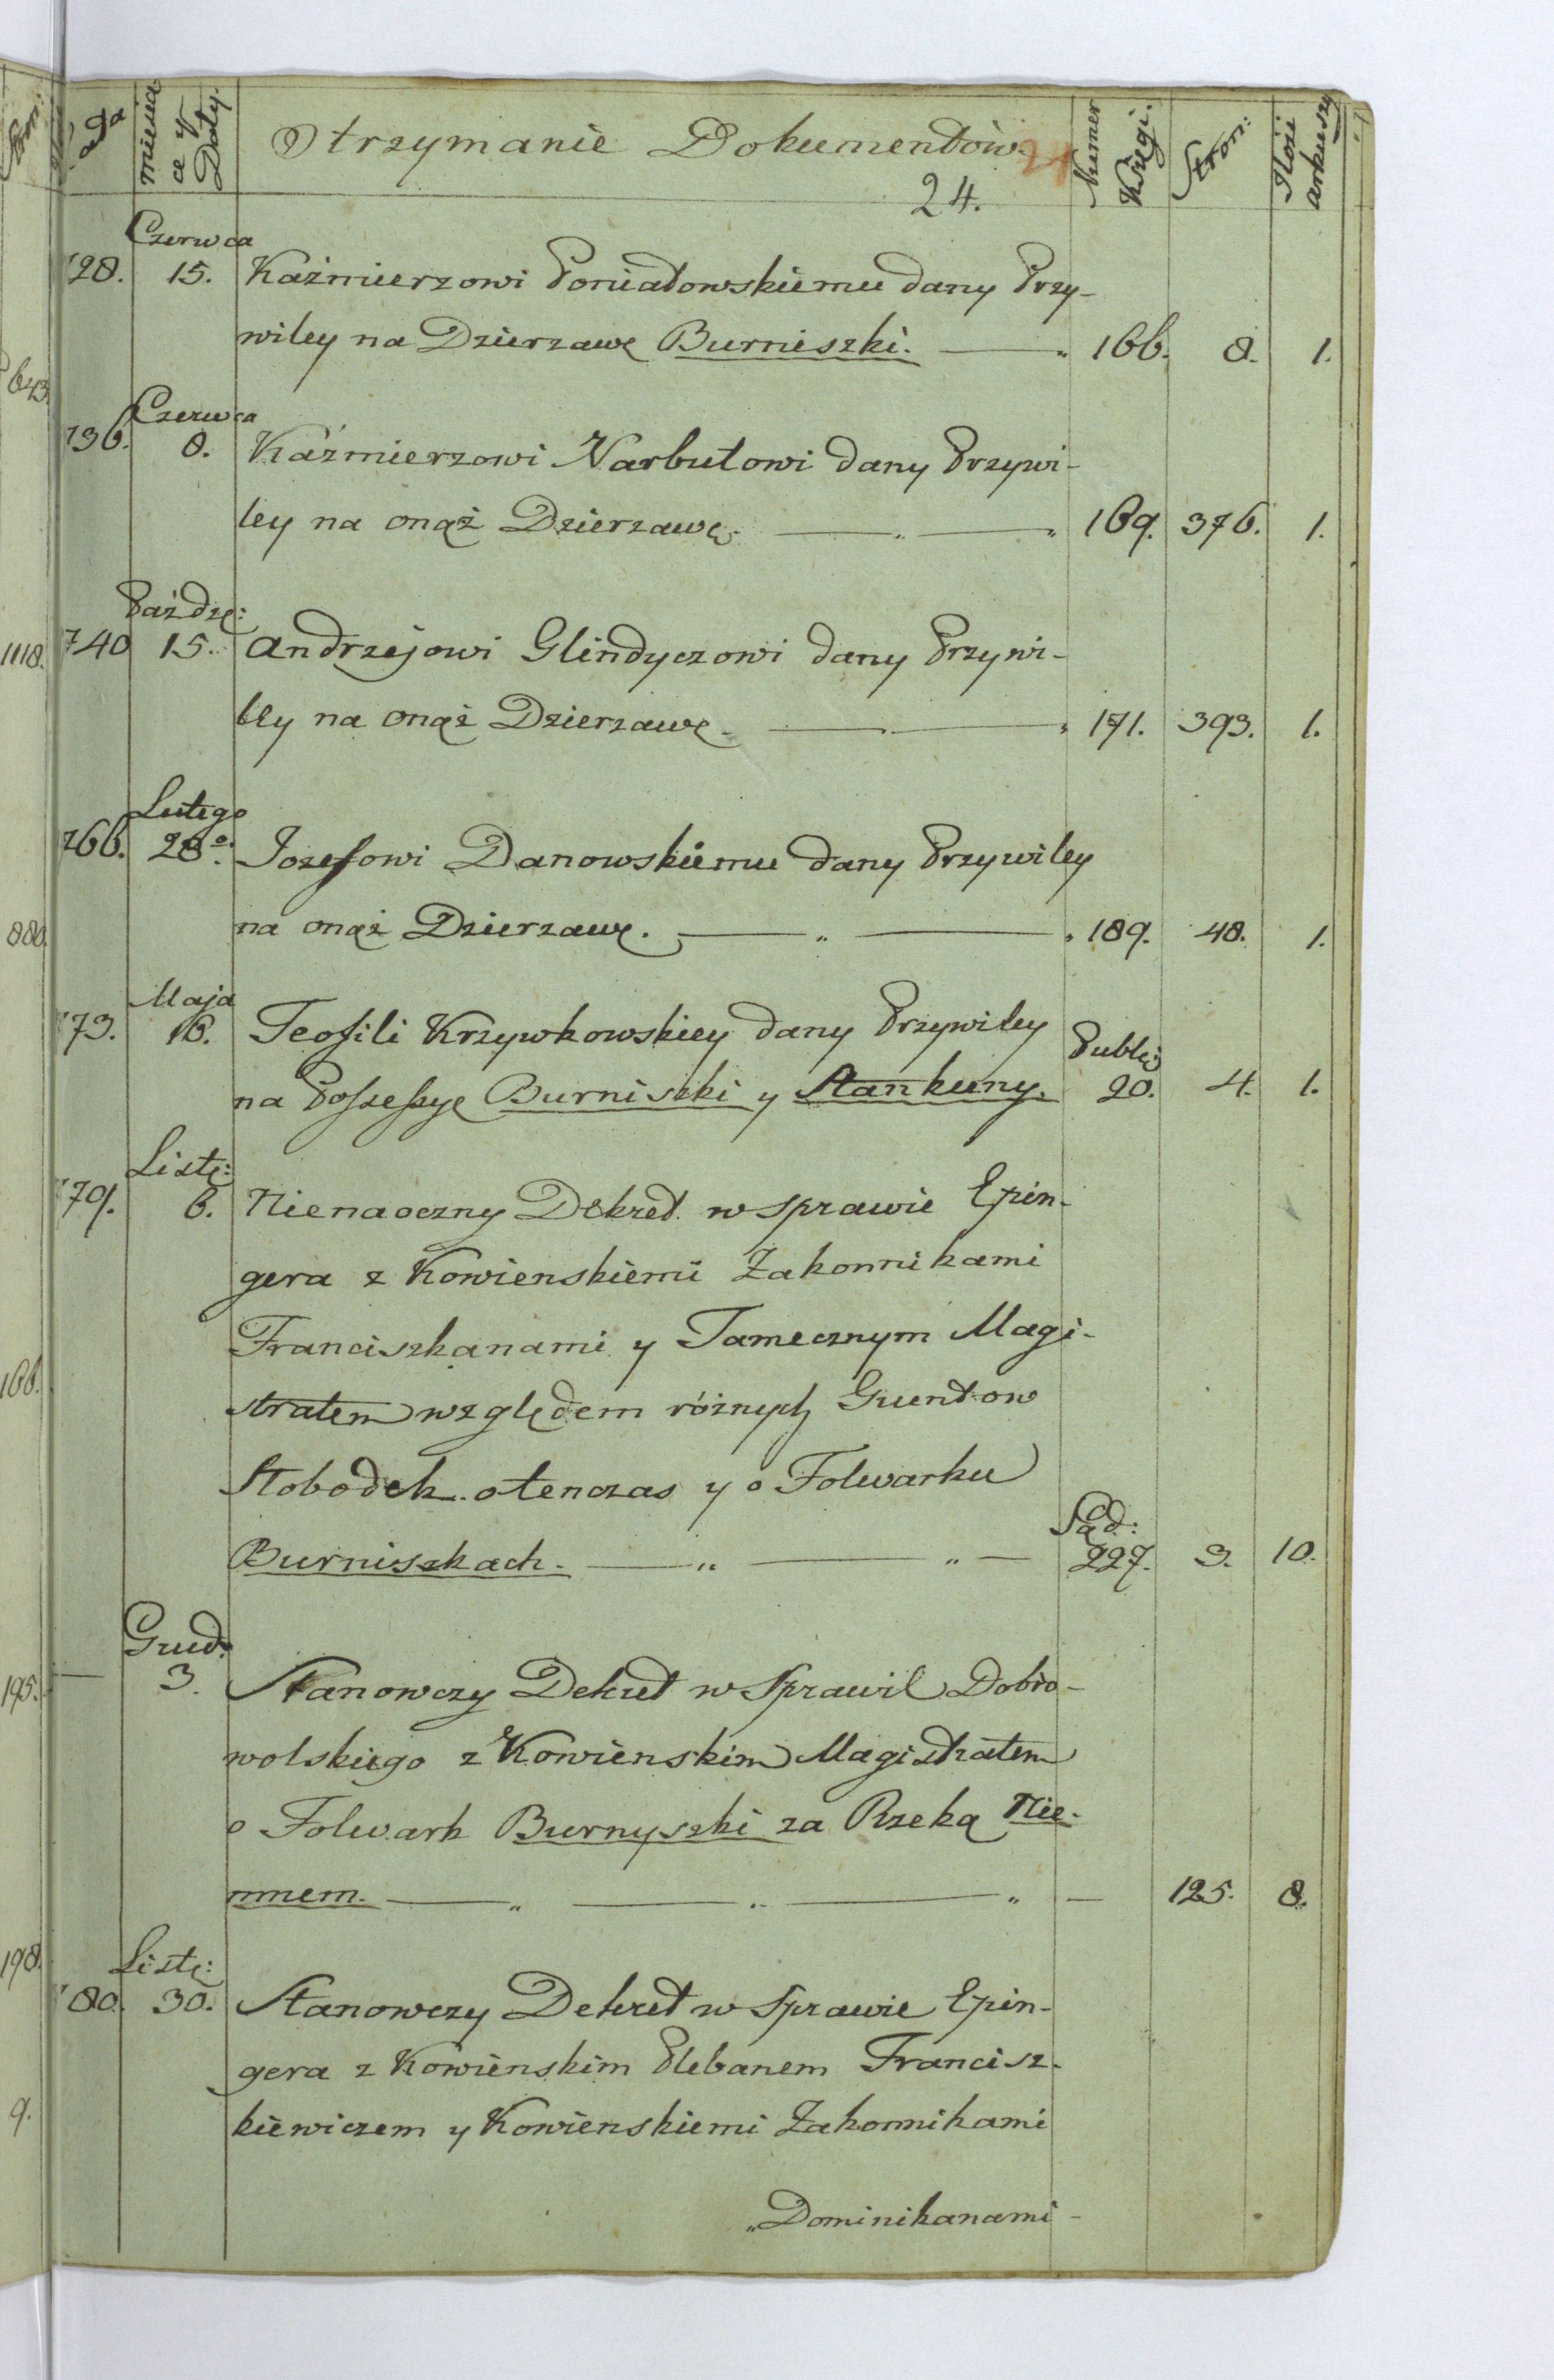 miesią
ce y
Daty.
Otrzymanie Dokumentów
24
24.
Numer
Księgi.
Stron:
Ilość
arkuszy
Czerwca
728. 15. Kaźmierzowi Poniatowskiemu dany Przy-
wiley na Dzierzawę Burniszki. 166. 8. 1.
Czerwca
736. 8. Kaźmierzowi Narbutowi dany Przywi-
ley na onąż Dzierzawę. 169. 376. 1.
Paźdz:
740 15. Andrzejowi Glindyczowi dany Przywi-
ley na onąż Dzierzawę. 171. 393. 1.
Lutego
766. 28. Jozefowi Danowskiemu dany Przywiley
na onąż Dzierzawę. 189. 48. 1.
Maja
773. 16. Teofili Krzywkowskiey dany Przywiley
Publ:
na Possessyę Burniszki y Stankuny. 20. 4. 1.
List:
779. 6. Nienaoczny Dekret w sprawie Epin-
gera z Kowienskiemi Zakonnikami
Franciszkanami y Tamecznym Magi-
stratem względem różnych Gruntow
Słobodek otenczas y o Folwarku
Sąd:
Burniszkach. 227. 3. 10.
Grud:
— 3. Stanowczy Dekret w Sprawie Dobro-
wolskiego z Kowienskim Magistratem
o Folwark Burnyszki za Rzeką Nie-
mnem. — 125. 8.
List:
780. 30. Stanowczy Dekret w Sprawie Epin-
gera z Kowienskim Plebanem Francisz-
kiewiczem y Kowienskiemi Zakonnikami
„Dominikanami-
643.
1118.
880.
166.
195.
198.
9.